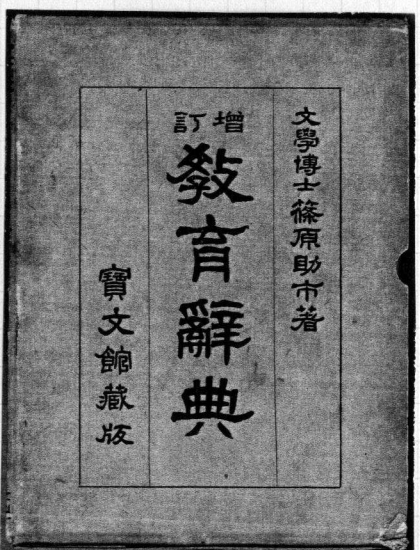 文學博士篠原助市著
增訂
敎育辭典
寶文館藏版